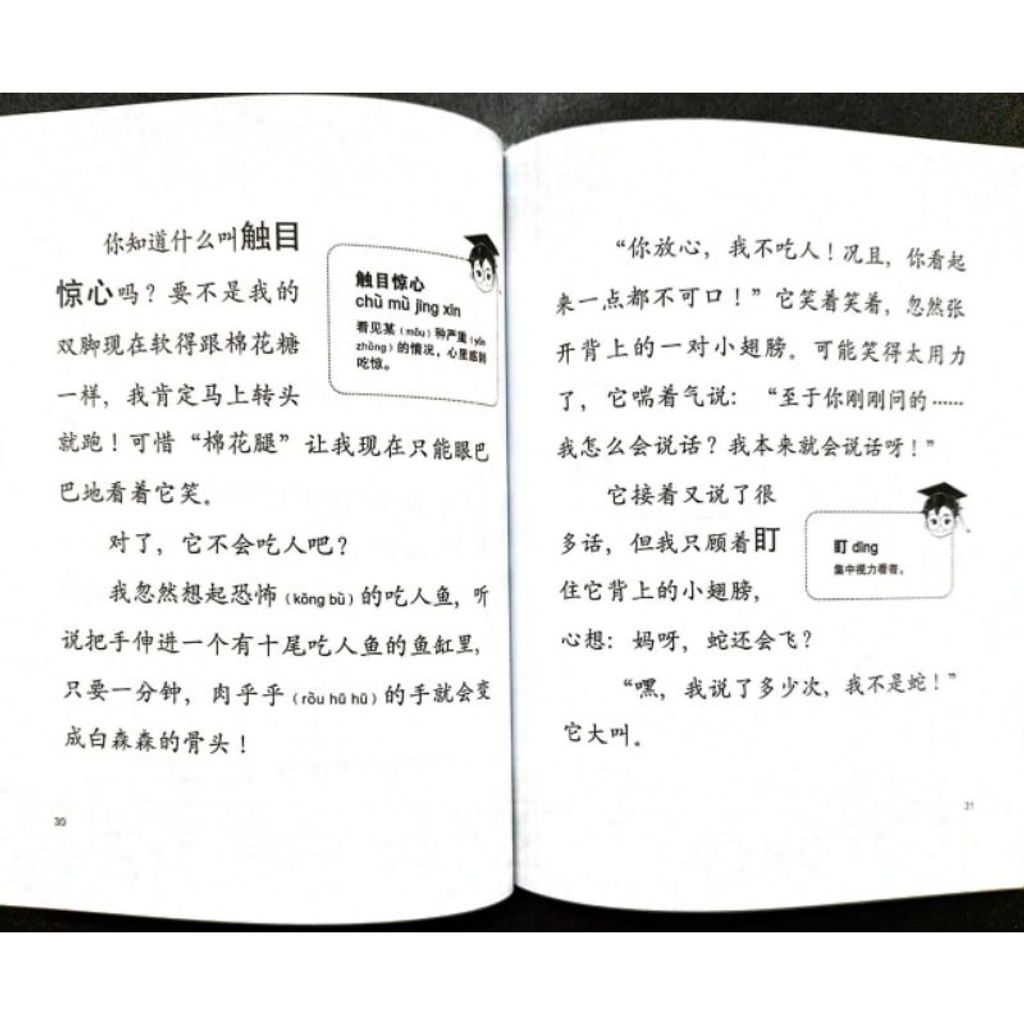 你知道什么叫触目
惊心吗？要不是我的
双脚现在软得跟棉花糖
一样，我肯定马上转头
就跑！可惜“棉花腿”让我现在只能眼巴
巴地看着它笑。
触目惊心
chù mù jīng xīn
看见某（mǒu）种严重（yán
zhòng）的情况，心里感到
吃惊。
对了，它不会吃人吧？
我忽然想起恐怖（kǒng bù）的吃人鱼，听
说把手伸进一个有十尾吃人鱼的鱼缸里，
只要一分钟，肉乎乎（ròu hū hū）的手就会变
成白森森的骨头！
30
“你放心，我不吃人！况且，你看起
来一点都不可口！”它笑着笑着，忽然张
开背上的一对小翅膀。可能笑得太用力
了，它喘着气说：“至于你刚刚问的……
我怎么会说话？我本来就会说话呀！”
它接着又说了很
多话，但我只顾着盯
住它背上的小翅膀，
心想：妈呀，蛇还会飞？
盯 dīng
集中视力看着。
“嘿，我说了多少次，我不是蛇！”
它大叫。
31